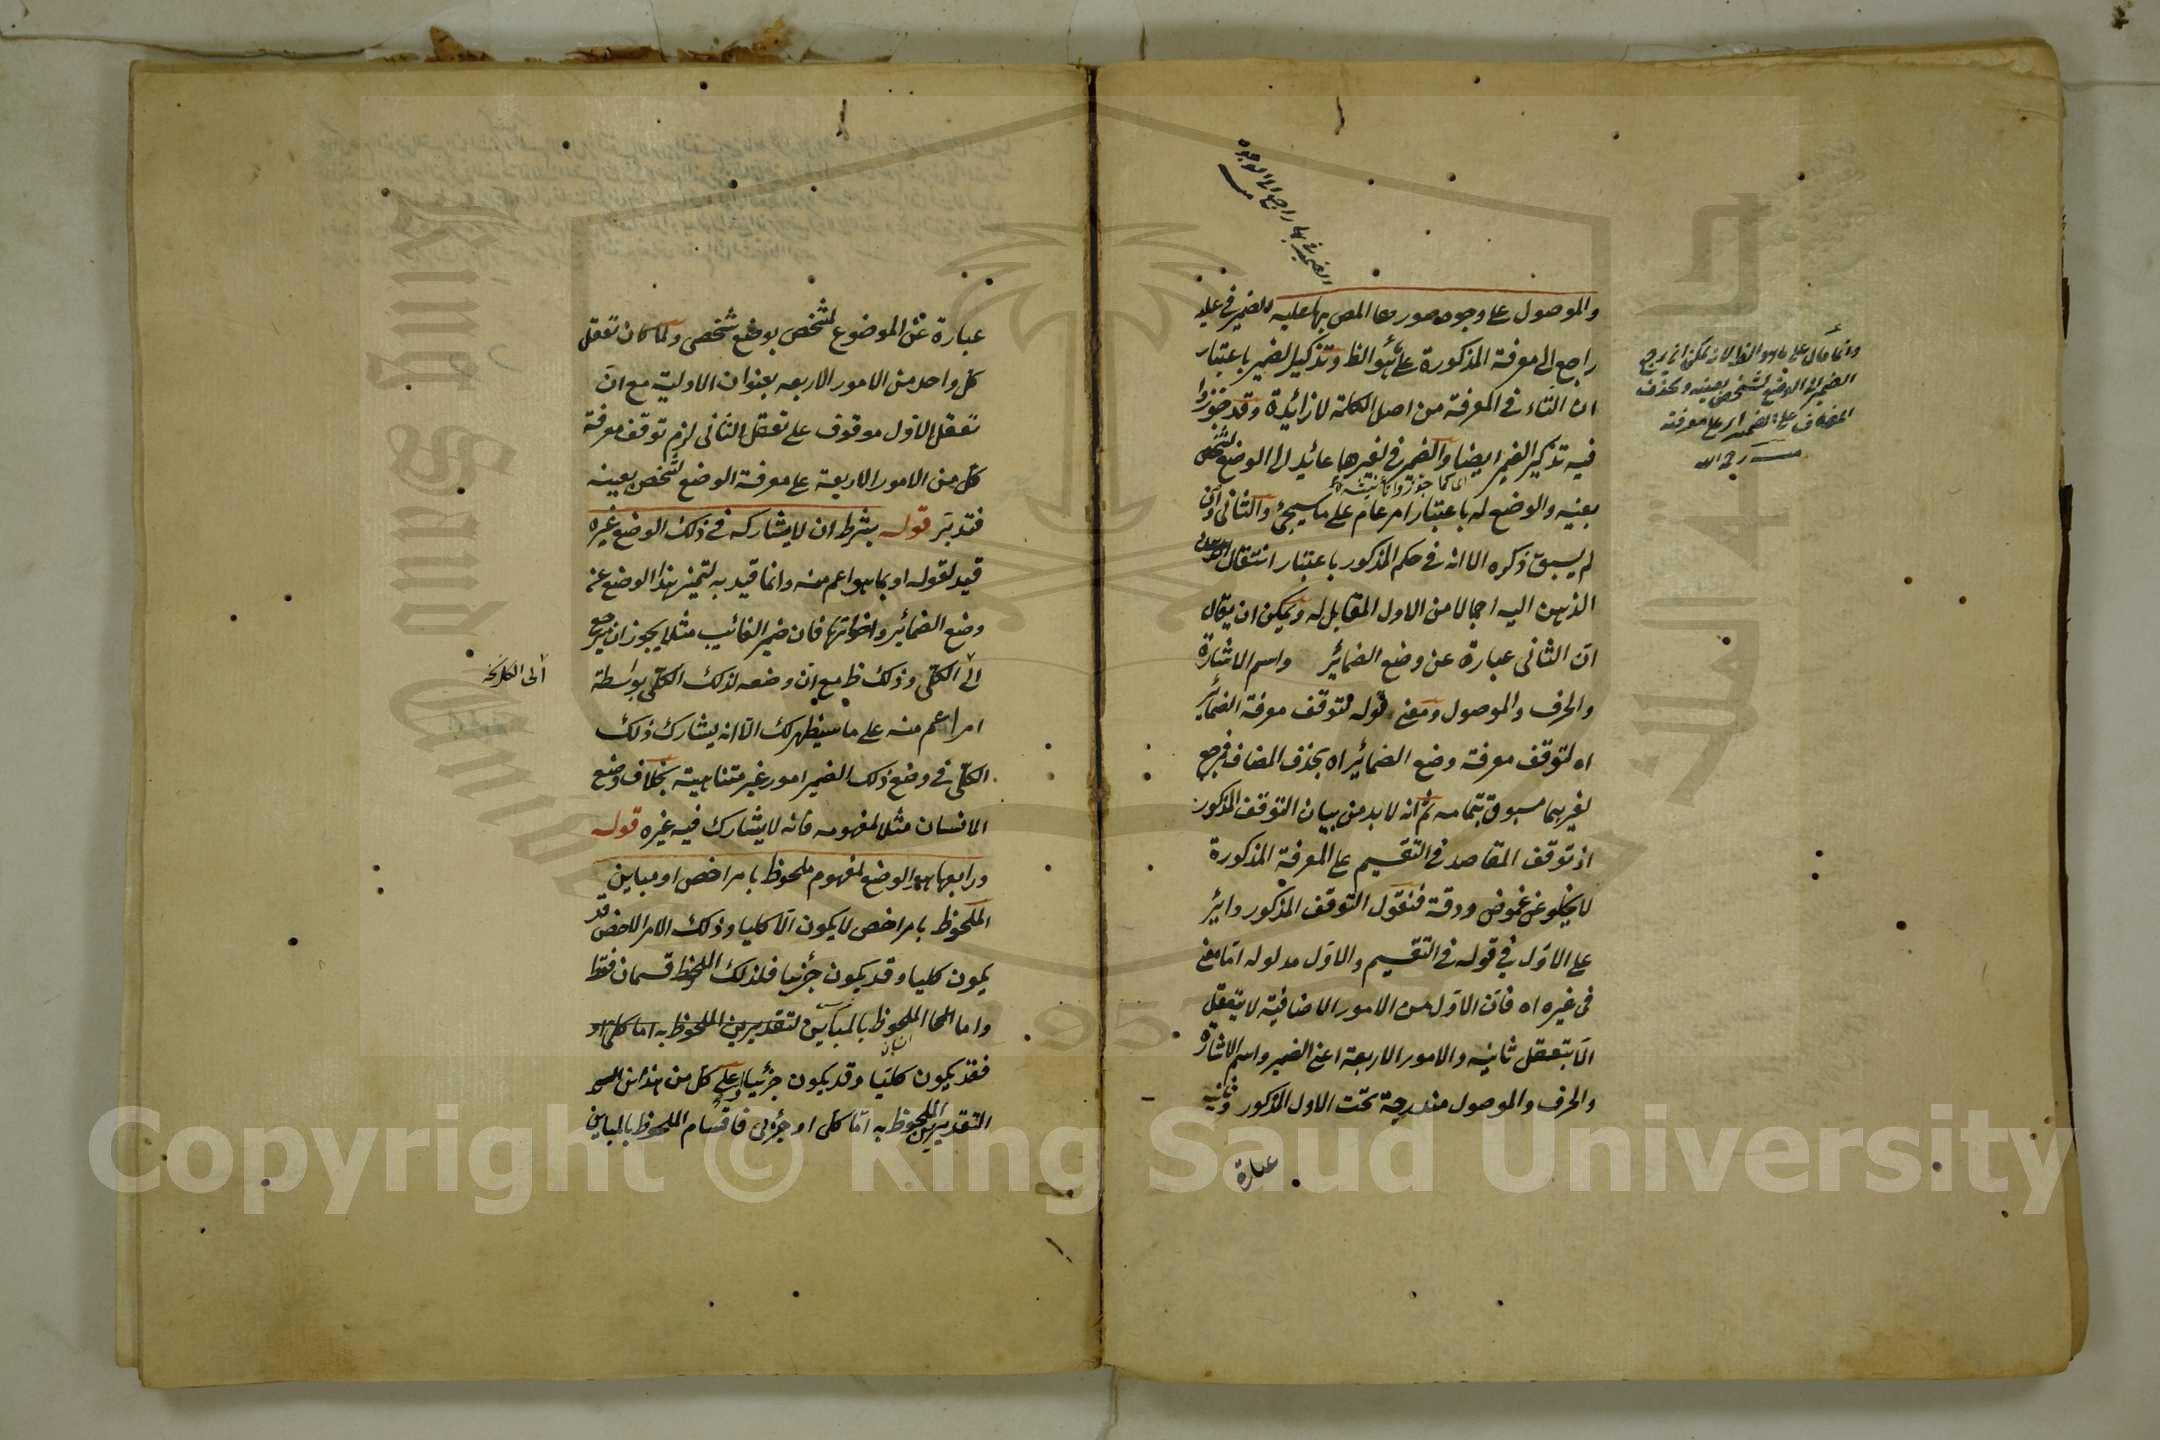 والموصول على وجوه صور
راجع الى معرفة المذكورة على ما هو الظ وتذكير الضمير باعتبار
ان التاء في المعرفة من اصل الكلمة لا زائدة وقد جوزوا
فيه تذكير الضمير ايضا والضمير في لغيرها عائد الى الوضع لشخص
بعينه والوضع له باعتبار امر عام على ما سيجئ والثاني وان
لم يسبق ذكره الا انه في حكم المذكور باعتبار انتقال
الذهن اليه اجمالا من الاول المقابل له ويمكن ان يقال
ان الثاني عبارة عن وضع الضمائر واسم الاشارة
والحرف والموصول ومعنى قوله لتوقف معرفة الضمائر
اه لتوقف معرفة وضع الضمائر اه بحذف المضاف فمرجع
لغيرهما مسبوق بتمامه ثم انه لا بد من بيان التوقف المذكور
اذ توقف المقاصد في التقسيم على المعرفة المذكورة
لا يخلو عن غموض ودقة فنقول التوقف المذكور دائر
على الاول في قوله في التقسيم والاول مدلوله اما معنى
في غيره اه فان الاول من الامور الاضافية لا يتعقل
الا بتعقل ثانيه والامور الاربعة اعني الضمير واسم الاشارة
والحرف والموصول مندرجة تحت الاول المذكور وثانيه
عبارة
الضمير في بها راجع الى الوجوه
منه
وانما قال على ما هو الظ لانه يمكن ان يرجع
الضمير الى الوضع لشخص بعينه ويحذف
المضاف
رحمه الله
عبارة عن الموضوع لشخص بوضع شخصي ولما كان تعقل
كل واحد من الامور الاربعه بعنوان الاولية مع ان
تعقل الاول موقوف على تعقل الثاني لزم توقف معرفة
كل من الامور الاربعة على معرفة الوضع لشخص بعينه
فتدبر قوله بشرط ان لا يشاركه في ذلك الوضع غيره
قيد لقوله او بما هو اعم منه وانما قيد به ليتميز هذا الوضع عن
وضع الضمائر واخواتها فان ضمير الغائب مثلا يجوز ان يرجع
الى الكلي وذلك ظ مع ان وضعه لذلك الكلي بواسطة
امر اعم منه على ما سيظهر لك الا انه يشارك ذلك
الكلي في وضع ذلك الضمير امور غير متناهية بخلاف وضع
الانسان مثلا لمفهومه فانه لا يشارك فيه غيره قوله
ورابعها هو الوضع لمفهوم ملحوظ بامر اخص او مباين
الملحوظ بامر اخص لا يكون الا كليا وذلك الامر الاخص قد
يكون كليا وقد يكون جزئيا فلذلك الملحوظ قسمان فقط
واما الملحوظ بالمباين لتقديرين الملحوظ به اما كلي او
فقد يكون كليا وقد يكون جزئيا وعلى كل من هذين
التقديرين الملحوظ به اما كلي او جزئي فاقسام الملحوظ بالمباين
Copyright © King Saud University